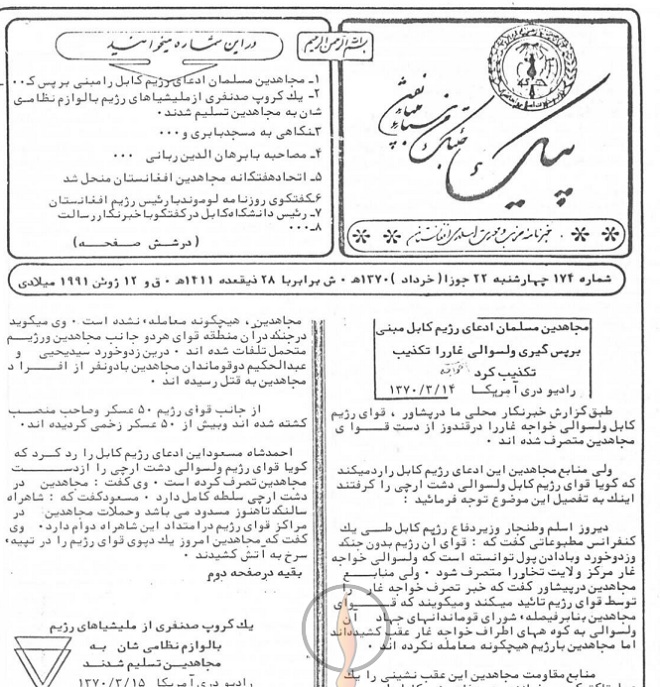 بسم الله الرحمن الرحیم
پیک
خبرنامه مرکزی جمعیت اسلامی افغانستان
در این شماره میخوانید
۱ـ مجاهدین مسلمان ادعای رژیم کابل رامبنی برپس ک...
۲ـ یك گروپ صدنفری ازملیشیاهای رژیم بالوازم نظامی
شان به مجاهدین تسلیم شدند.
۳ـنگاهی به مسجدبابری و...
۴ـ مصاحبه بابرهان الدین ربانی ...
۵ـ اتحادهفتگانه مجاهدین افغانستان منحل شد
۶ـگفتگوی روزنامه لوموندبارئیس رژیم افغانستان
۷ـ رئیس دانشگاه‌کابل درگفتگوباخبرنگاررسالت
۸ـ...
(درشش صفحـــه)
شماره ۱۷۴ چهارشنبه ۲۲ جوزا (خرداد) ۱۳۷۰هـ . ش برابربا ۲۸ ذیقعده ۱۴۱۱هـ . ق و ۱۲ ژوئن ۱۹۹۱ میلادی
مجاهدین مسلمان ادعای رژیم کابل مبنی
برپس گیری ولسوالی غاررا تکذیب
تکذیب کرد خواجه
رادیو دری آمریکا ۱۳۷۰/۳/۱۴
طبق گزارش خبرنگار محلی ما درپشاور ، قوای رژیم
کابل ولسوالی خواجه غاررا درقندوز از دست قـــوا ی
مجاهدین متصرف شده اند .
ولی منابع مجاهدین این ادعای رژیم کابل راردمیکند
که گویا قوای رژیم کابل ولسوالی دشت ارچی را گرفتند
اینك به تفصیل این موضوع توجه فرمائید :
دیروز اسلم وطنجار وزیردفاع رژیم کابل طــی یك
کنفرانس مطبوعاتی گفت که : قوای آن رژیم بدون جنگ
وزدوخورد وبادادن پول توانسته است که ولسوالی خواجه
غار مرکز ولایت تخاررا متصرف شود . ولی منابـــع
مجاهدین درپیشاور گفت که خبر تصرف خواجه غار را
توسط قوای رژیم تائید میکند ومیگویند که قـــوای
مجاهدین بنابرفیصله، شورای قوماندانهای جهاد آن
ولسوالی به کوه ههای اطراف خواجه غار عقب کشیده‌اند
اما مجاهدین بارژیم هیچگونه معامله نکرده اند .
منابع مقاومت مجاهدین این عقب نشینی را یك
مجاهدین ، هیچگونه معامله، نشده است . وی میگوید
درجنگ درآن منطقه قوای هردو جانب مجاهدین ورژیـم
متحمل تلفات شده اند . درین زدوخورد سیدیحیی و
عبدالحکیم دوقوماندان مجاهدین بادونفر از افـــرا د
مجاهدین به قتل رسیده اند .
از جانب قوای رژیم ۵۰ عسکر وصاحب منصـــب
کشته شده اند وبیش از ۵۰ عسکر زخمی گردیده اند.
احمدشاه مسعوداین ادعای رژیم کابل را رد کـرد که
گویا قوای رژیم ولسوالی دشت ارچی را ازدســـت
مجاهدین تصرف کرده است . وی گفت : مجاهدین در
دشت ارچی سلطه کامل دارد . مسعودگفت که : شاهراه
سالنگ تاهنوز مسدود می باشد وحملات مجاهدین در
مراکز قوای رژیم درامتداد این شاهراه دوام دارد. وی
گفت که مجاهدین امروز یك دیپوی قوای رژیم را در تپه،
سرخ به آتش کشیدند .
بقیه درصفحه دوم
یك گروپ صدنفری از ملیشیاهای رژیم
بالوازم نظامی شان به
مجاهدیـــن تسلیم شدنـد
رادیو دری آمریکا ۱۳۷۰/۳/۱۵